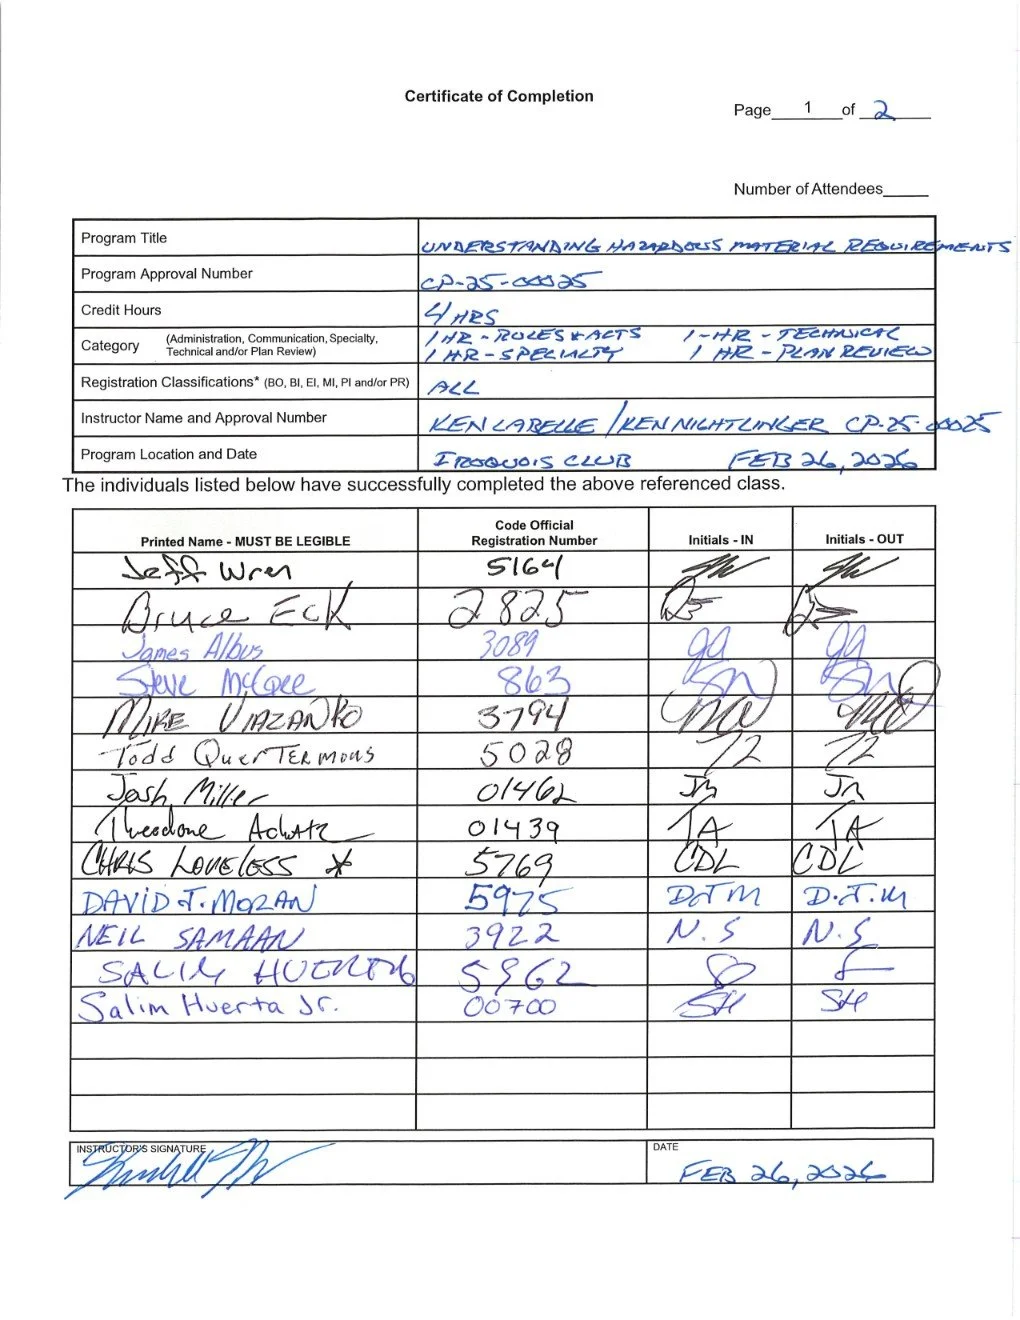 Certificate of Completion
Page 1 of 2
Number of Attendees
Program Title UNDERSTANDING HAZARDOUS MATERIAL REQUIREMENTS
Program Approval Number CP-25-00025
Credit Hours 4 HRS
Category (Administration, Communication, Specialty, Technical and/or Plan Review) 1 HR - RULES & ACTS 1-HR - TECHNICAL
1 HR - SPECIALTY 1 HR - PLAN REVIEW
Registration Classifications* (BO, BI, EI, MI, PI and/or PR) ALL
Instructor Name and Approval Number KEN LABELLE / KEN NIGHTLINGER CP-25-00025
Program Location and Date IROQUOIS CLUB FEB 26, 2026
The individuals listed below have successfully completed the above referenced class.
Printed Name - MUST BE LEGIBLE Code Official Registration Number Initials - IN Initials - OUT
Jeff Wren 5164
Bruce Eck 2825 BE BE
James Albus 3089 JA JA
Steve McGee 863 SM SM
MIKE VIAZANKO 3794
Todd QuerTERmous 5028 TQ TQ
Josh Miller 01462 Jm Jm
Theodore Adwtz 01439 TA TA
CHRIS LOVELESS * 5769 CDL CDL
DAVID J. MORAN 5975 DJM D.J.M
NEIL SAMAAN 3922 N.S N.S
SALIM HUERTA 5962
Salim Huerta Jr. 00700 SH SH
INSTRUCTOR'S SIGNATURE DATE
FEB 26, 2026